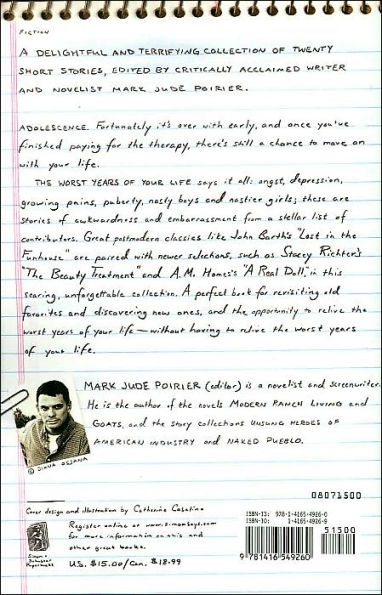 FICTION
A DELIGHTFUL AND TERRIFYING COLLECTION OF TWENTY
SHORT STORIES, EDITED BY CRITICALLY ACCLAIMED WRITER
AND NOVELIST MARK JUDE POIRIER.
ADOLESCENCE. Fortunately it's over with early, and once you've
finished paying for the therapy, there's still a chance to move on
with your life.
THE WORST YEARS OF YOUR LIFE says it all: angst, depression,
growing pains, puberty, nasty boys and nastier girls; these are
stories of awkwardness and embarrassment from a stellar list of
contributors. Great postmodern classics like John Barth's "Lost in the
Funhouse" are paired with newer selections, such as Stacey Richter's
"The Beauty Treatment" and A.M. Homes's "A Real Doll," in this
searing, unforgettable collection. A perfect book for revisiting old
favorites and discovering new ones, and the opportunity to relive the
worst years of your life — without having to relive the worst years
of your life.
MARK JUDE POIRIER (editor) is a novelist and screenwriter.
He is the author of the novels MODERN RANCH LIVING and
GOATS, and the story collections UNSUNG HEROES OF
AMERICAN INDUSTRY and NAKED PUEBLO.
© DIANA OSSANA
08071500
Cover design and illustration by Catherine Casalino
Register online at www.simonsays.com
for more information on this and
other great books.
Simon &
Schuster
Paperbacks
U.S. $15.00/Can. $18.99
ISBN-13: 978-1-4165-4926-0
ISBN-10: 1-4165-4926-9
51500
9 781416 549260